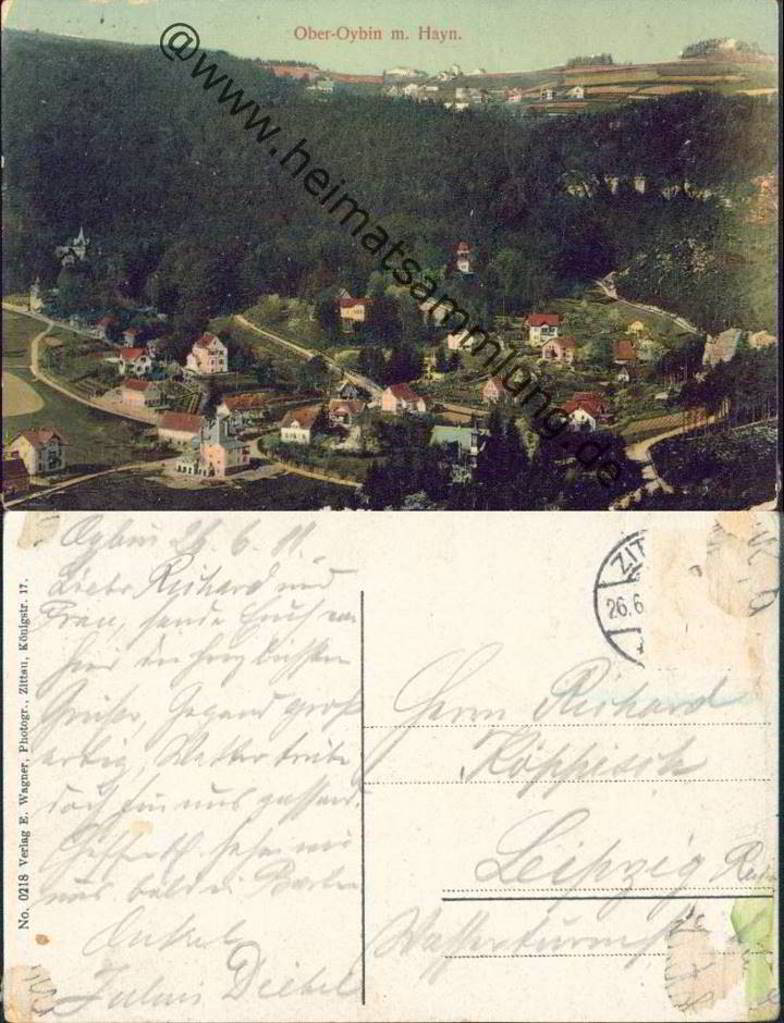 Ober-Oybin m. Hayn.
@www.heimatsammlung.de
No. 0218 Verlag E. Wagner, Photogr., Zittau, Königstr. 17.
Oybin 26. 6.
Liebe Richard und
Frau, sende Euch von
hier die herzlichsten
Grüße, Gegend groß
artig, Wetter trübe
doch für uns passend.
Hoffentl. sehen wir
uns bald in
Onkel
Julius Diebel
ZIT
26.6
Herrn Richard
Köppisch
Leipzig